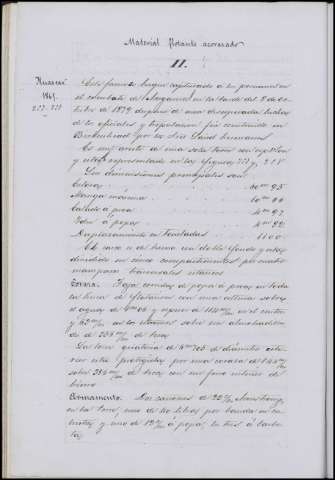 Material flotante acorazado
II.
Huascar
1865
227-228
Este famoso buque capturado a los peruanos en
el combate de Angamos en la tarde del 8 de oc-
tubre de 1879 despues de una desesperada lucha
de los oficiales y tripulacion fué construido en
Birkenhead por los Srs Laird hermanos
Es un ariete de una sola torre con
y esta representado en las figuras 227 y 228
Las dimensiones principales son
Eslora
Manga maxima
Calado a proa
Idem a popa
Desplazamiento en Toneladas 1100
El casco es de hierro con doble fondo y esta
dividido en cinco compartimientos por cuatro
mamparos transversales estancos
Coraza. Faja corrida de popa á proa en toda
la linea de flotacion con una
el agua de y espesor de 114 m/m en el centro
y en los estremos sobre un almohadilla-
do de 254 m/m de teca
La torre giratoria de de diámetro este-
rior esta protegida por una coraza de
sobre de teca con un forro interior de
hierro
Armamento. Dos cañones de Armstrong
en la torre, uno de 40 libras por banda en
y uno de á popa, los tres á barbe-
ta